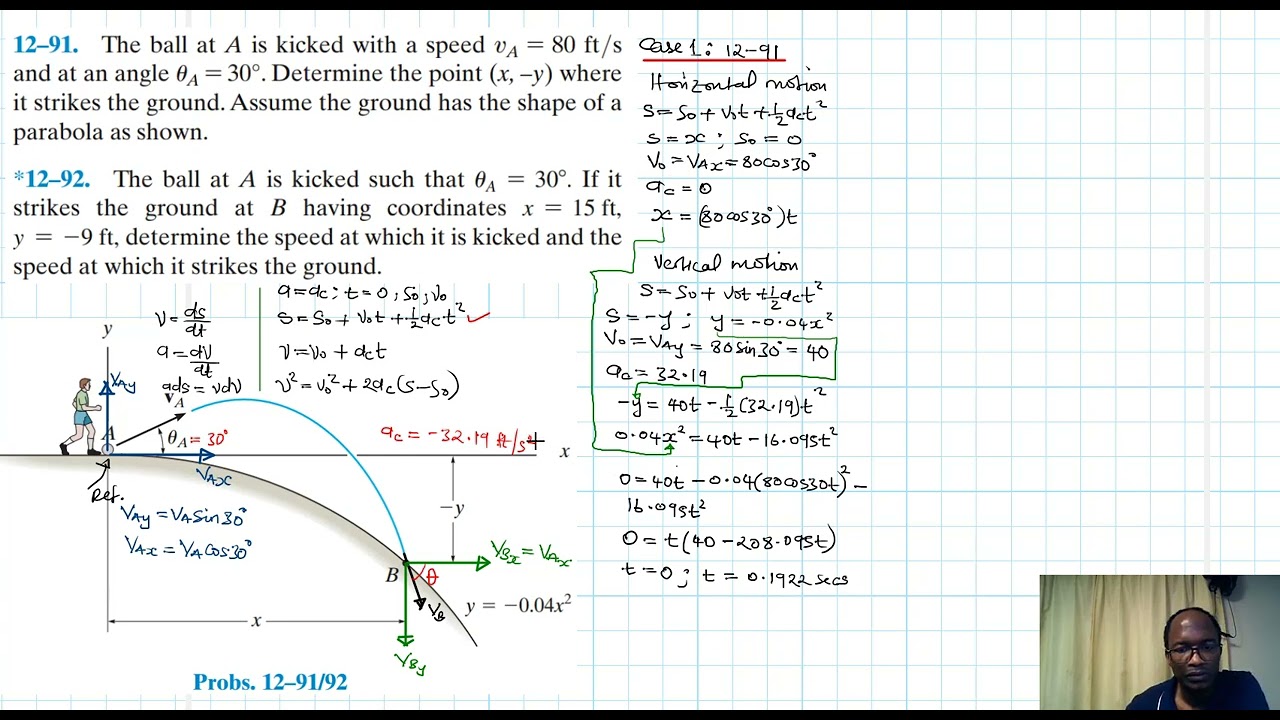 12–91. The ball at A is kicked with a speed v_A = 80 ft/s
and at an angle θ_A = 30°. Determine the point (x, –y) where
it strikes the ground. Assume the ground has the shape of a
parabola as shown.
*12–92. The ball at A is kicked such that θ_A = 30°. If it
strikes the ground at B having coordinates x = 15 ft,
y = −9 ft, determine the speed at which it is kicked and the
speed at which it strikes the ground.
V = ds/dt
a = dV/dt
ads = vdv
a = ac ; t = 0, So, Vo
S = So + Vot + 1/2 act²
V = Vo + act
V² = Vo² + 2ac(S − So)
y
VAy
v_A
A
θ_A = 30°
ac = −32.19 ft/s²
+
x
VAx
Ref.
VAy = VA Sin30°
VAx = VA Cos30°
−y
VBx = VAx
B
θ
VB
y = −0.04x²
x
VBy
Probs. 12–91/92
Case 1: 12-91
Horizontal motion
S = So + Vot + 1/2 act²
S = x ; So = 0
Vo = VAx = 80cos30°
ac = 0
x = (80cos30°)t
Vertical motion
S = So + Vot + 1/2 act²
S = −y ; y = −0.04x²
Vo = VAy = 80sin30° = 40
ac = 32.19
−y = 40t − 1/2 (32.19)t²
0.04x² = 40t − 16.095t²
0 = 40t − 0.04(80cos30t)² −
16.095t²
0 = t(40 − 208.095t)
t = 0 ; t = 0.1922 secs